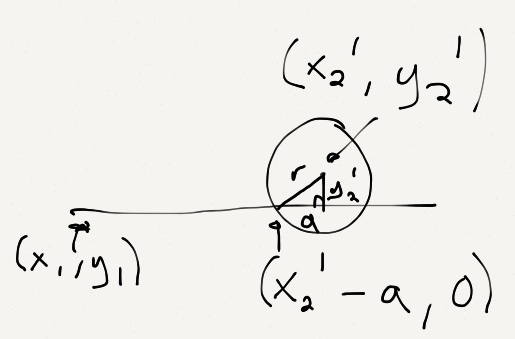 (x₂', y₂')
r
y₂'
a
(x₁, y₁)
(x₂' - a, 0)